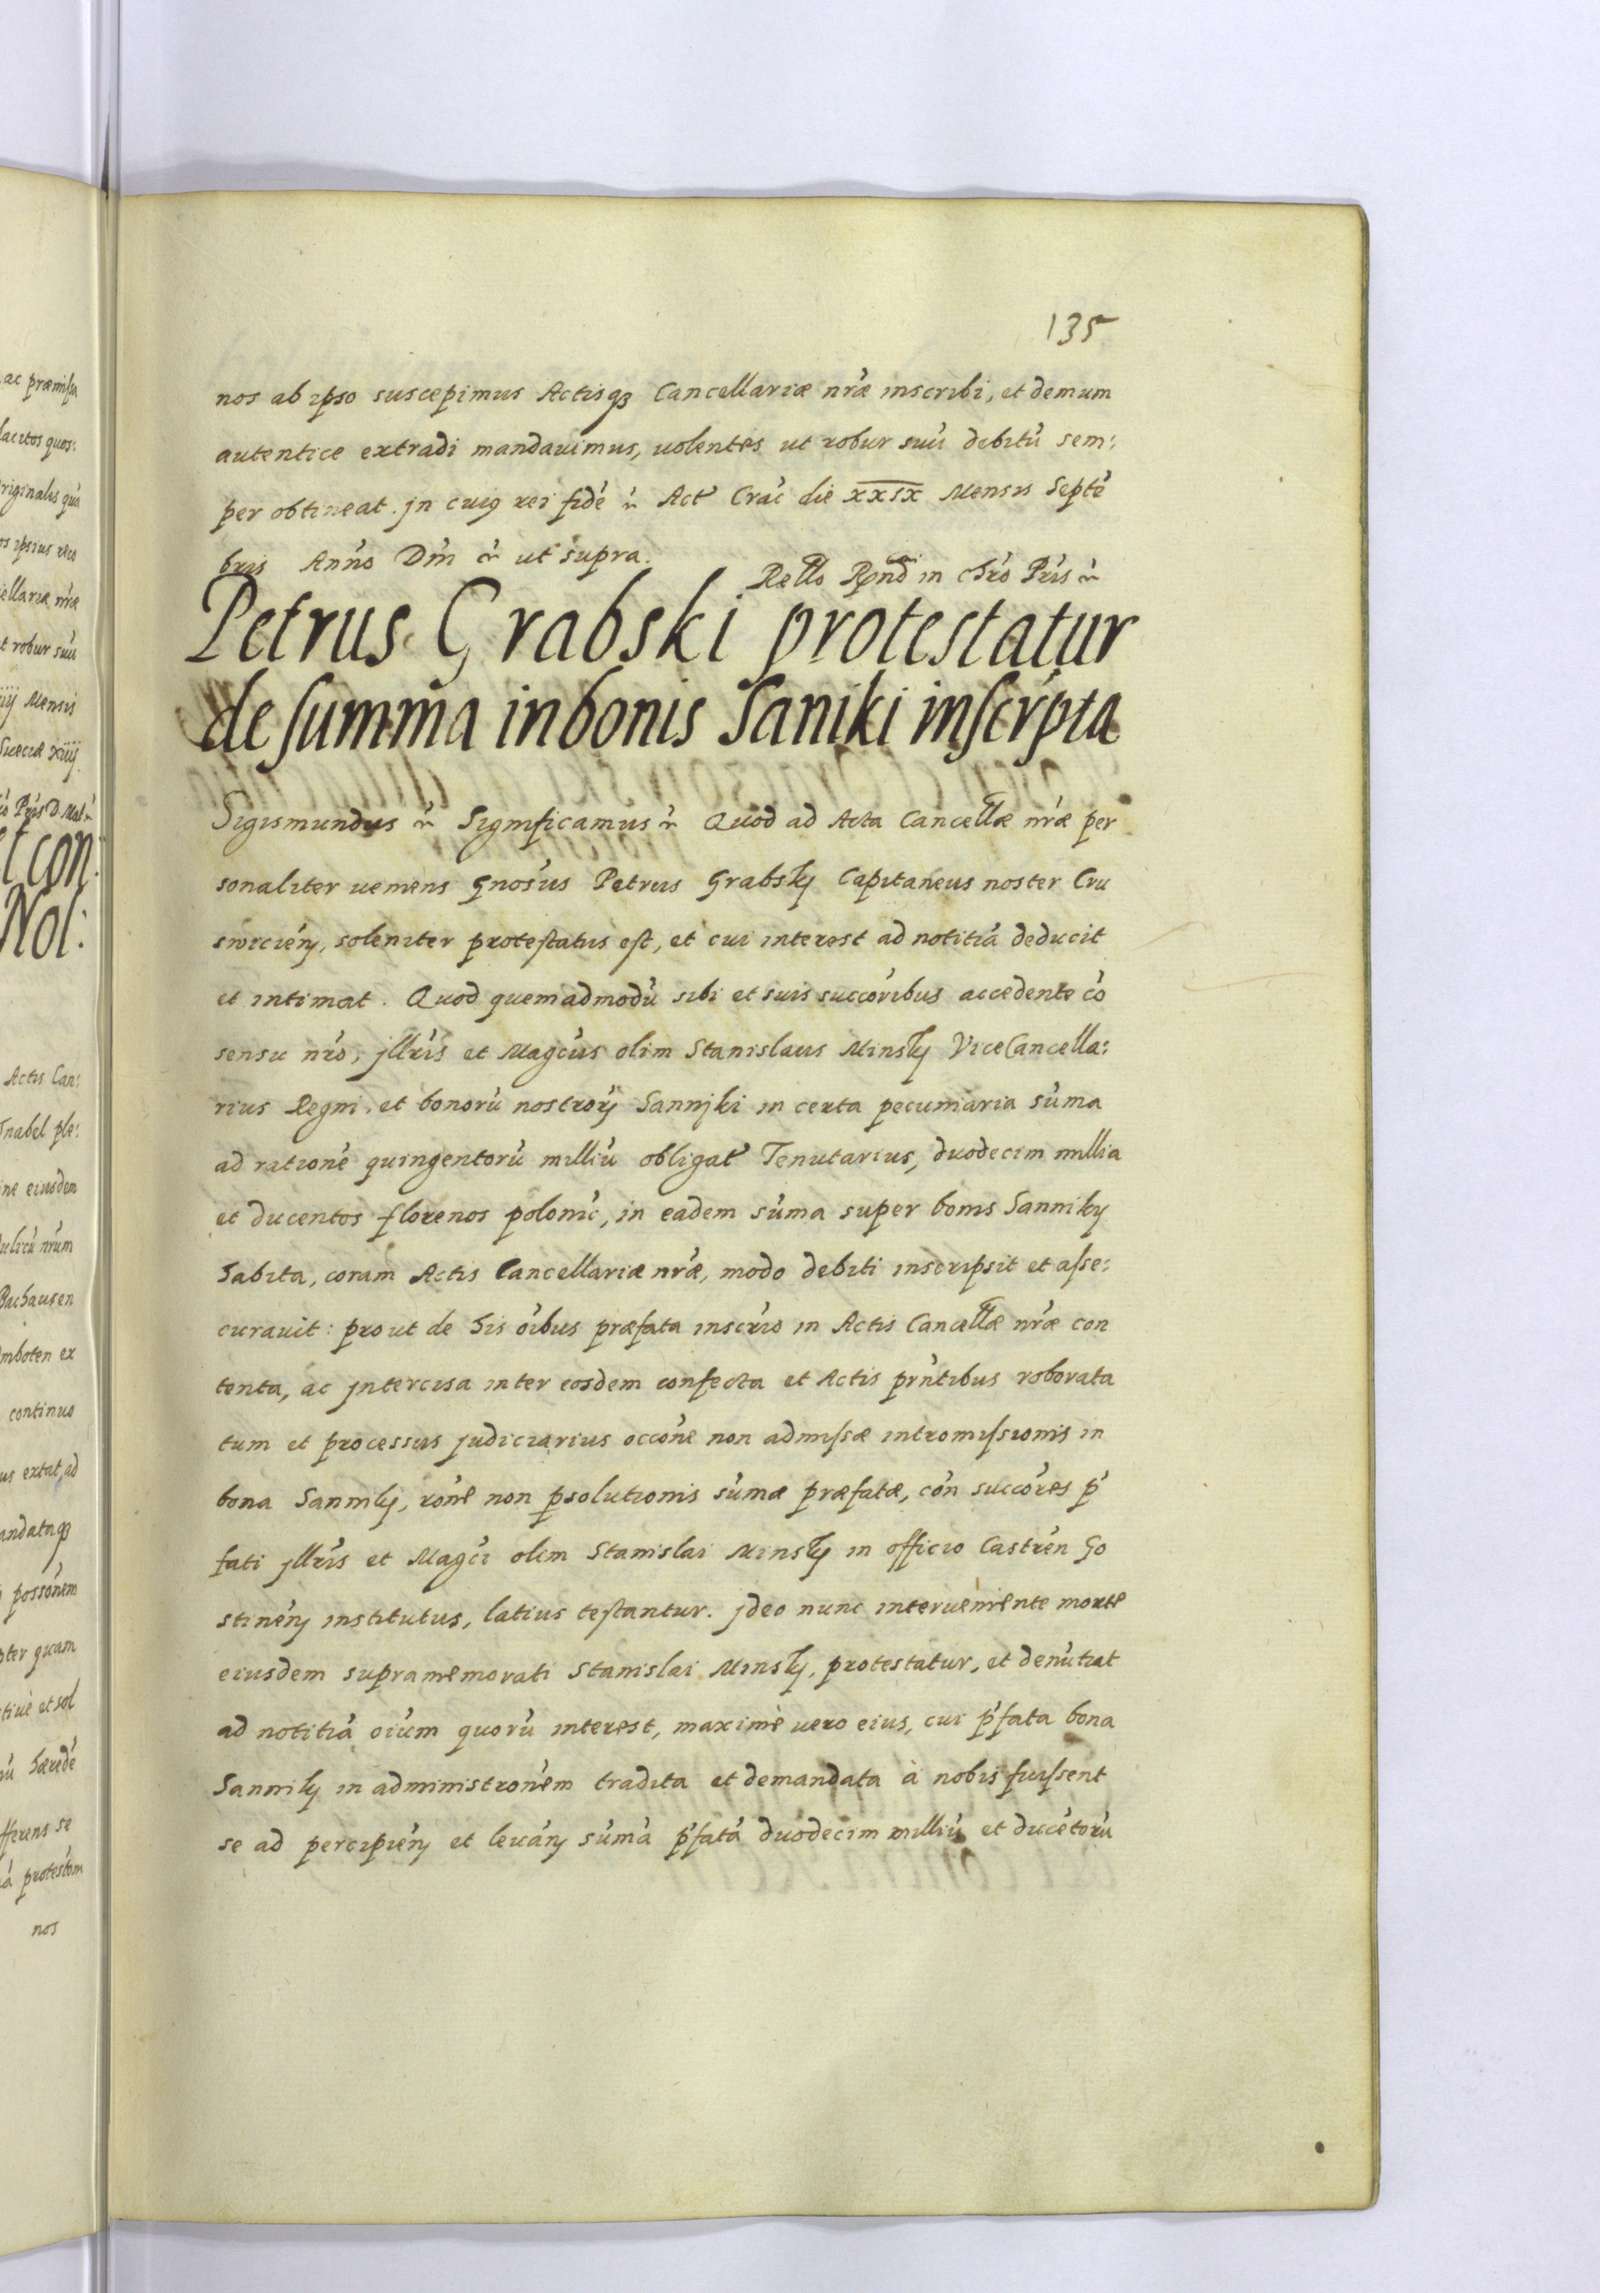 135
nos ab ipso suscepimus Actisq3 Cancellariæ nr̃æ inscribi, et demum
autentice extradi mandauimus, uolentes ut robur suũ debitũ sem:
per obtineat. jn cuiq rei fidẽ &c Act̃ Crac̃ die xxix Mensis Septẽ
bris Anño Dm̃ &c ut supra.
Rel̃lo Rṇ̃di in Chr̃o Pr̃is &c
Petrus Grabski protestatur
de summa in bonis Saniki inscripta
Sigismundus &c Significamus &c Quod ad Acta Cancel̃læ nr̃æ per
sonaliter ueniens gnõsus Petrus Grabsky Capitaneus noster Cru
swicieñ, soleniter protestatus est, et cui interest ad notitiã deducit
et intimat. Quod quemadmodũ sibi et suis succõribus accedente cõ
sensu nr̃o, jllr̃is et Magc̃us olim Stanislaus Minsky ViceCancella:
rius Regni, et bonorũ nostrorȝ Sannjki in certa pecuniaria sũma
ad rationẽ quingentorũ milliũ obligat̃ Tenutarius, duodecim millia
et ducentos florenos polonic̃, in eadem sũma super bonis Sanniky
habita, coram Actis Cancellariæ nr̃æ, modo debiti inscripsit et asse:
curauit: prout de his oĩbus præfata inscr̃io in Actis Cancel̃læ nr̃æ con
tenta, ac jntercisa inter eosdem confecta et Actis prñtibus roborata
tum et processus judiciarius occõne non admissæ intromissionis in
bona Sanniky, rõne non psolutionis sũmæ præfatæ, cõn succõres p̃
fati jllr̃is et Magc̃i olim Stanislai Minsky in officio Castreñ Go
stineñ institutus, latius testantur. jdeo nunc interueniente morte
eiusdem supramemorati Stanislai Minsky, protestatur, et denũtiat
ad notitiã oĩum quorũ interest, maxime uero eius, cui p̃fata bona
Sanniky in administronẽm tradita et demandata à nobis fuissent
se ad percipieñ et leuañ sũmã p̃fatã duodecim milliũ et ducẽtorũ